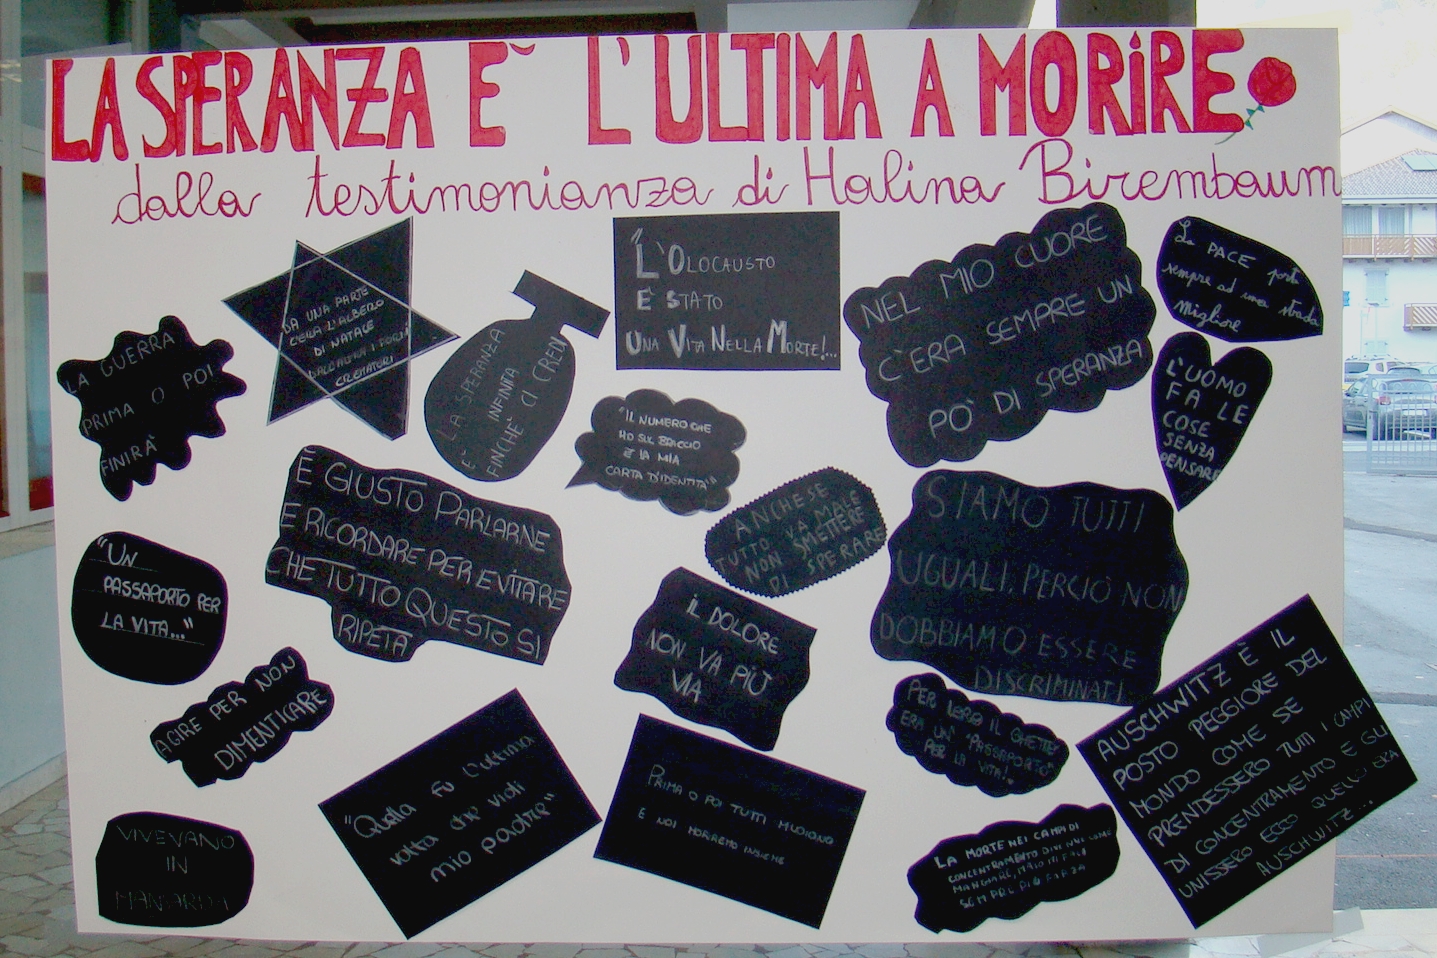 LA SPERANZA È L'ULTIMA A MORIRE
dalla testimonianza di Halina Birembaum
LA GUERRA
PRIMA O POI
FINIRÀ
DA UNA PARTE
C'ERA L'ALBERO
DI NATALE
DALL'ALTRA I FORNI
CREMATORI
E' LA SPERANZA
INFINITA
FINCHÈ CI CREDI
"L'OLOCAUSTO
È STATO
UNA VITA NELLA MORTE!...
NEL MIO CUORE
C'ERA SEMPRE UN
PO' DI SPERANZA
La PACE porta
sempre ad una strada
migliore
L'UOMO
FA LE
COSE
SENZA
PENSARE
"IL NUMERO CHE
HO SUL BRACCIO
È LA MIA
CARTA D'IDENTITA'"
ANCHE SE
TUTTO VA MALE
NON SMETTERE
DI SPERARE
È GIUSTO PARLARNE
E RICORDARE PER EVITARE
CHE TUTTO QUESTO SI
RIPETA
SIAMO TUTTI
UGUALI, PERCIÒ NON
DOBBIAMO ESSERE
DISCRIMINATI
"UN
PASSAPORTO PER
LA VITA..."
IL DOLORE
NON VA PIÙ
VIA
AGIRE PER NON
DIMENTICARE
PER LORO IL GHETTO
ERA UN "PASSAPORTO
PER LA VITA!"
AUSCHWITZ È IL
POSTO PEGGIORE DEL
MONDO COME SE
PRENDESSERO TUTTI I CAMPI
DI CONCENTRAMENTO E GLI
UNISSERO ECCO QUELLO ERA
AUSCHWITZ...
"Quella fu l'ultima
volta che vidi
mio padre"
PRIMA O POI TUTTI MUOIONO
E NOI MORREMO INSIEME
LA MORTE NEI CAMPI DI
CONCENTRAMENTO DIVENNE COME
MANGIARE, MA IO MI FACI
SEMPRE PIÙ FORZA
VIVEVANO
IN
MANSARDA